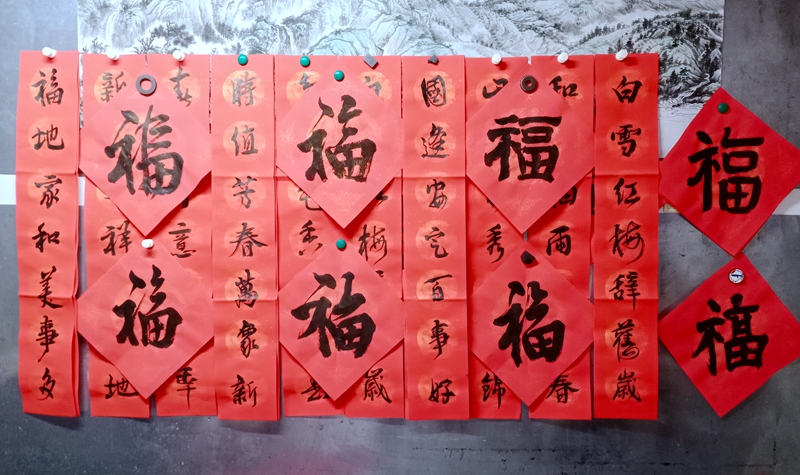 福
福
白雪红梅辞舊歲
和 雨 春
秀 錦
福
福
國逢安定百事好
梅 歲
香
福
福
時值芳春萬象新
春 意
新 祥 地
福
福
福地家和美事多